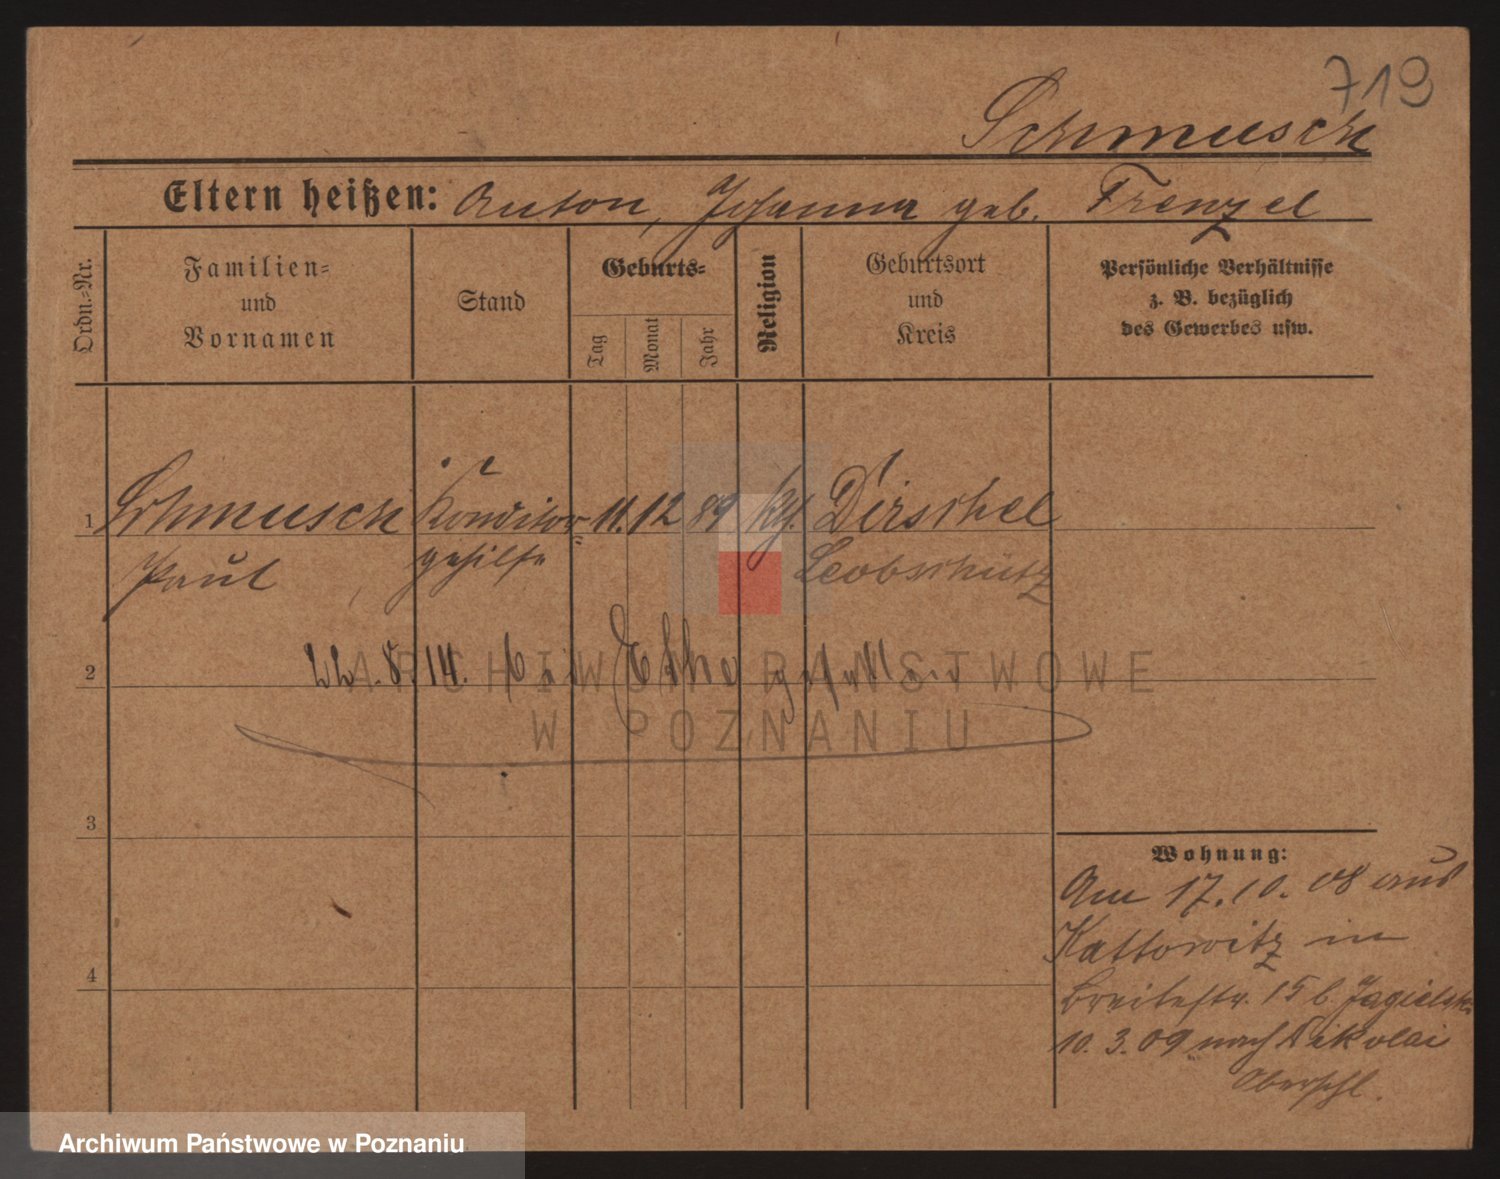 719
Schmusch
Eltern heißen: Anton, Johanna geb. Frenzel
Ordn.=Nr.
Familien=
und
Vornamen
Stand
Geburts=
Tag
Monat
Jahr
Religion
Geburtsort
und
Kreis
Persönliche Verhältnisse
z. B. bezüglich
des Gewerbes usw.
1 Schmusch Konditor= 11. 12 89 kth. Dirschel
Paul gehilfe Leobschütz
22. 8. 14. bei Ethe gefallen
2
3
4
Wohnung:
Am 17.10.08 aus
Kattowitz in
Breitestr. 15 b. Jagielski
10.3.09 nach Nikolai
Oberschl.
ARCHIWUM PAŃSTWOWE
W POZNANIU
Archiwum Państwowe w Poznaniu